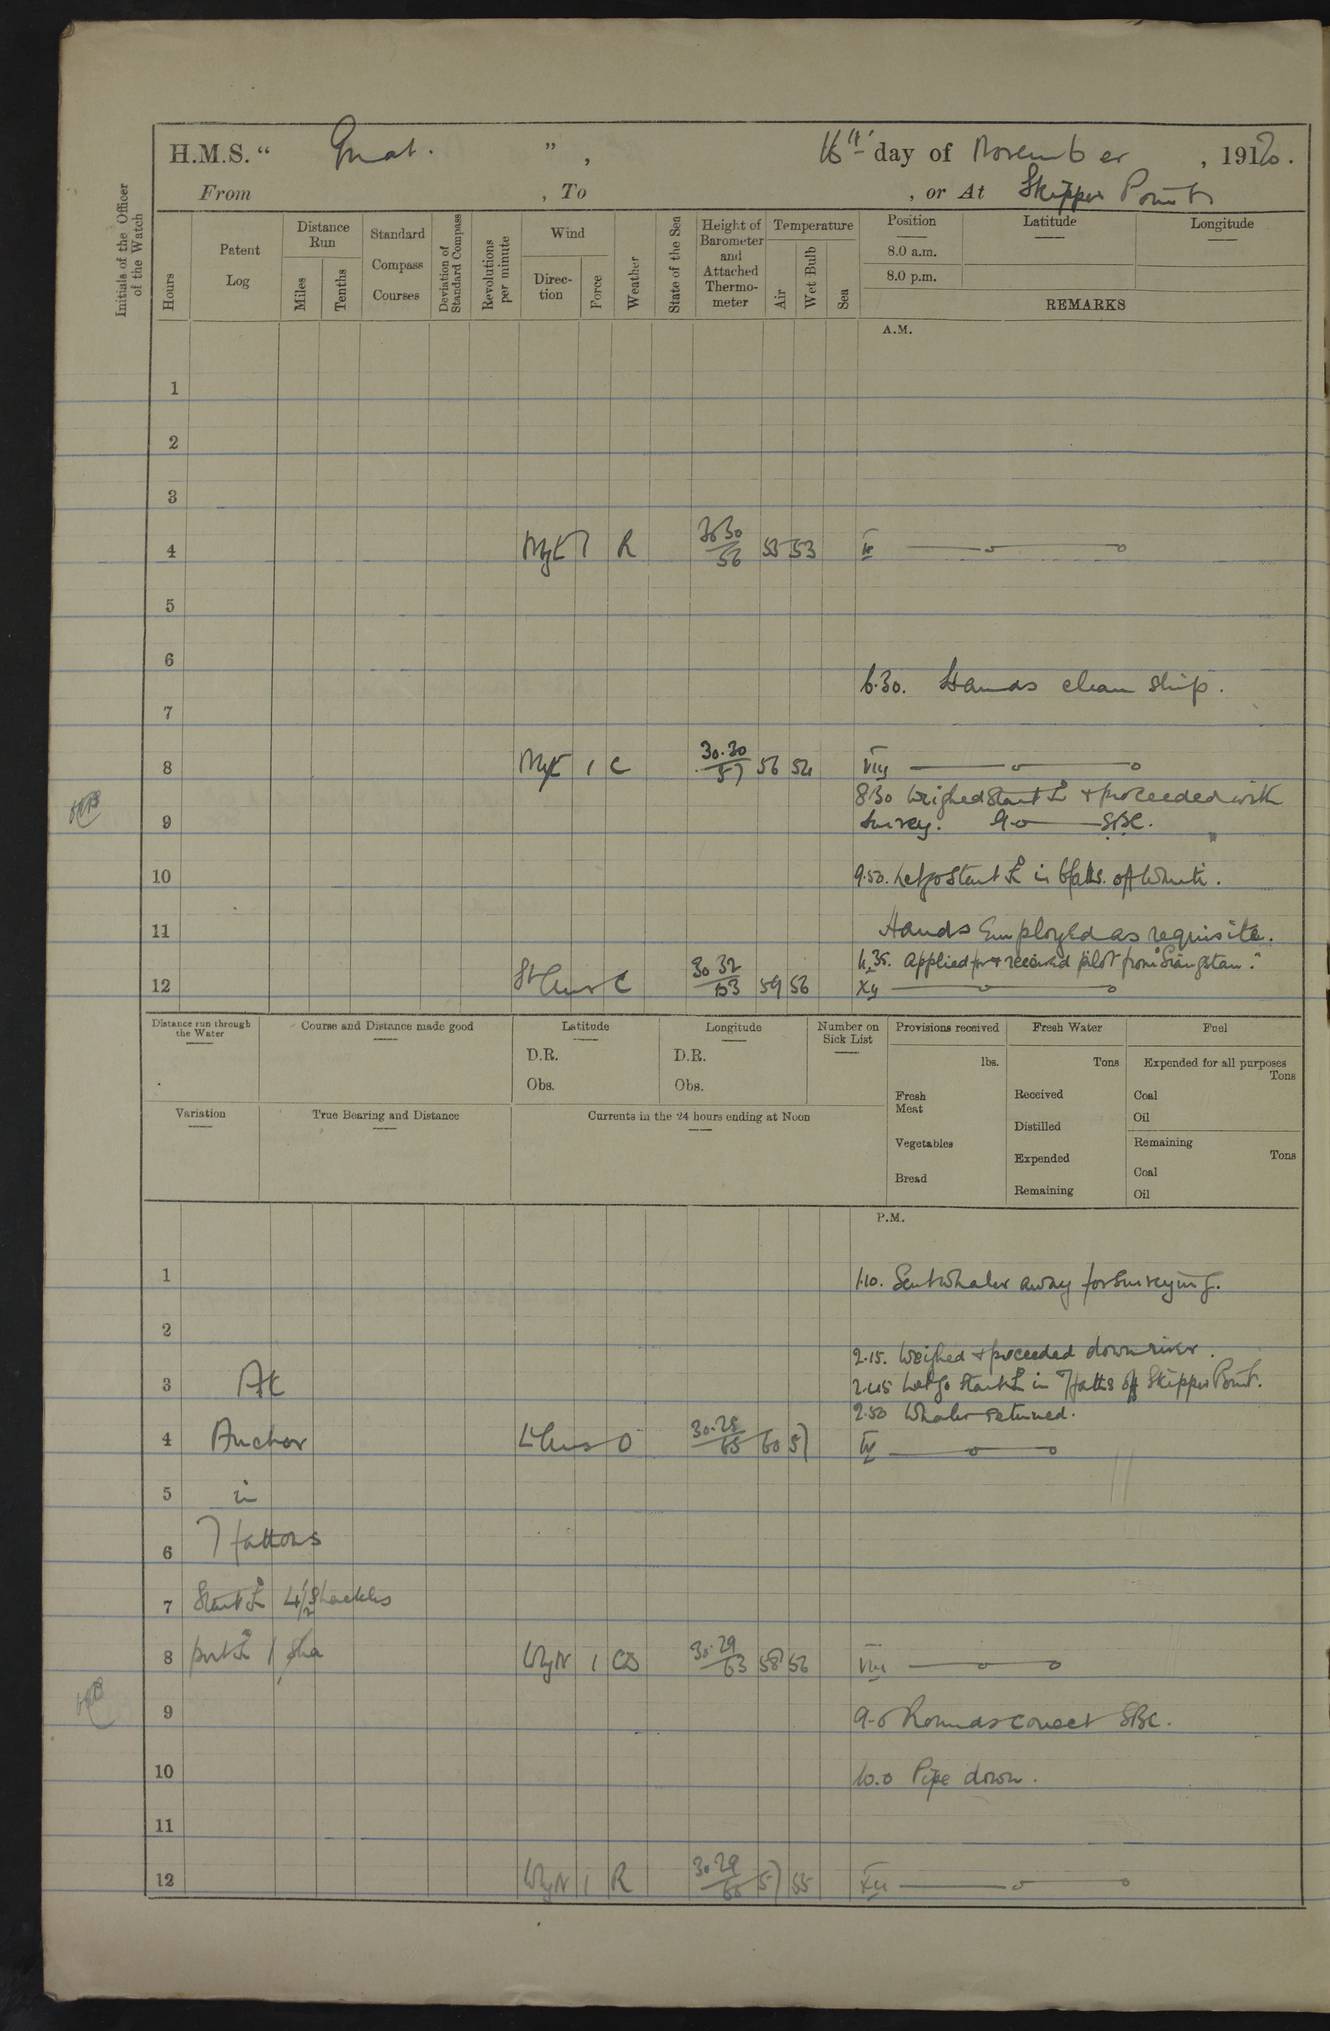 H.M.S. “ Gnat. ” , 16th day of November , 1920.
From , To , or At Skipper Point
Initials of the Officer of the Watch
Hours
Patent Log
Distance Run
Miles
Tenths
Standard Compass Courses
Deviation of Standard Compass
Revolutions per minute
Wind
Direction
Force
Weather
State of the Sea
Height of Barometer and Attached Thermometer
Temperature
Air
Wet Bulb
Sea
Position
Latitude
Longitude
8.0 a.m.
8.0 p.m.
REMARKS
A.M.
1
2
3
4 NbyE 1 R 30.30/56 55 53 IV
5
6
6.30. Hands clean ship.
7
8 NbyE 1 C 30.30/57 56 54 VIII
8.30 Weighed Start ⚓ & proceeded with
9 Survey. 9.0 SBC.
10 9.50. Let go Start ⚓ in 6 faths. off
11 Hands Employed as requisite.
11.35. Applied for & received pilot from "Siangtan."
12 Lt Airs C 30.32/63 59 56 XII
Distance run through the Water
Course and Distance made good
Latitude
D.R.
Obs.
Longitude
D.R.
Obs.
Number on Sick List
Provisions received
lbs.
Fresh Meat
Vegetables
Bread
Fresh Water
Tons
Received
Distilled
Expended
Remaining
Fuel
Expended for all purposes
Tons
Coal
Oil
Remaining
Tons
Coal
Oil
Variation
True Bearing and Distance
Currents in the 24 hours ending at Noon
P.M.
1 1.10. Sent Whaler away for Surveying.
2
2.15. Weighed & proceeded down river.
3 At 2.45 Let go Start ⚓ in 7 faths off Skipper Point.
2.50 Whaler returned.
4 Anchor Lt Airs O 30.28/65 60 57 IV
5 in
6 7 fathoms
7 Start ⚓ 4½ Shackles
8 port ⚓ 1 sha WbyN 1 30.29/63 58 56 VIII
9 9.0 Rounds correct SBC.
10 10.0 Pipe down.
11
12 WbyN 1 R 30.29 57 55 XII